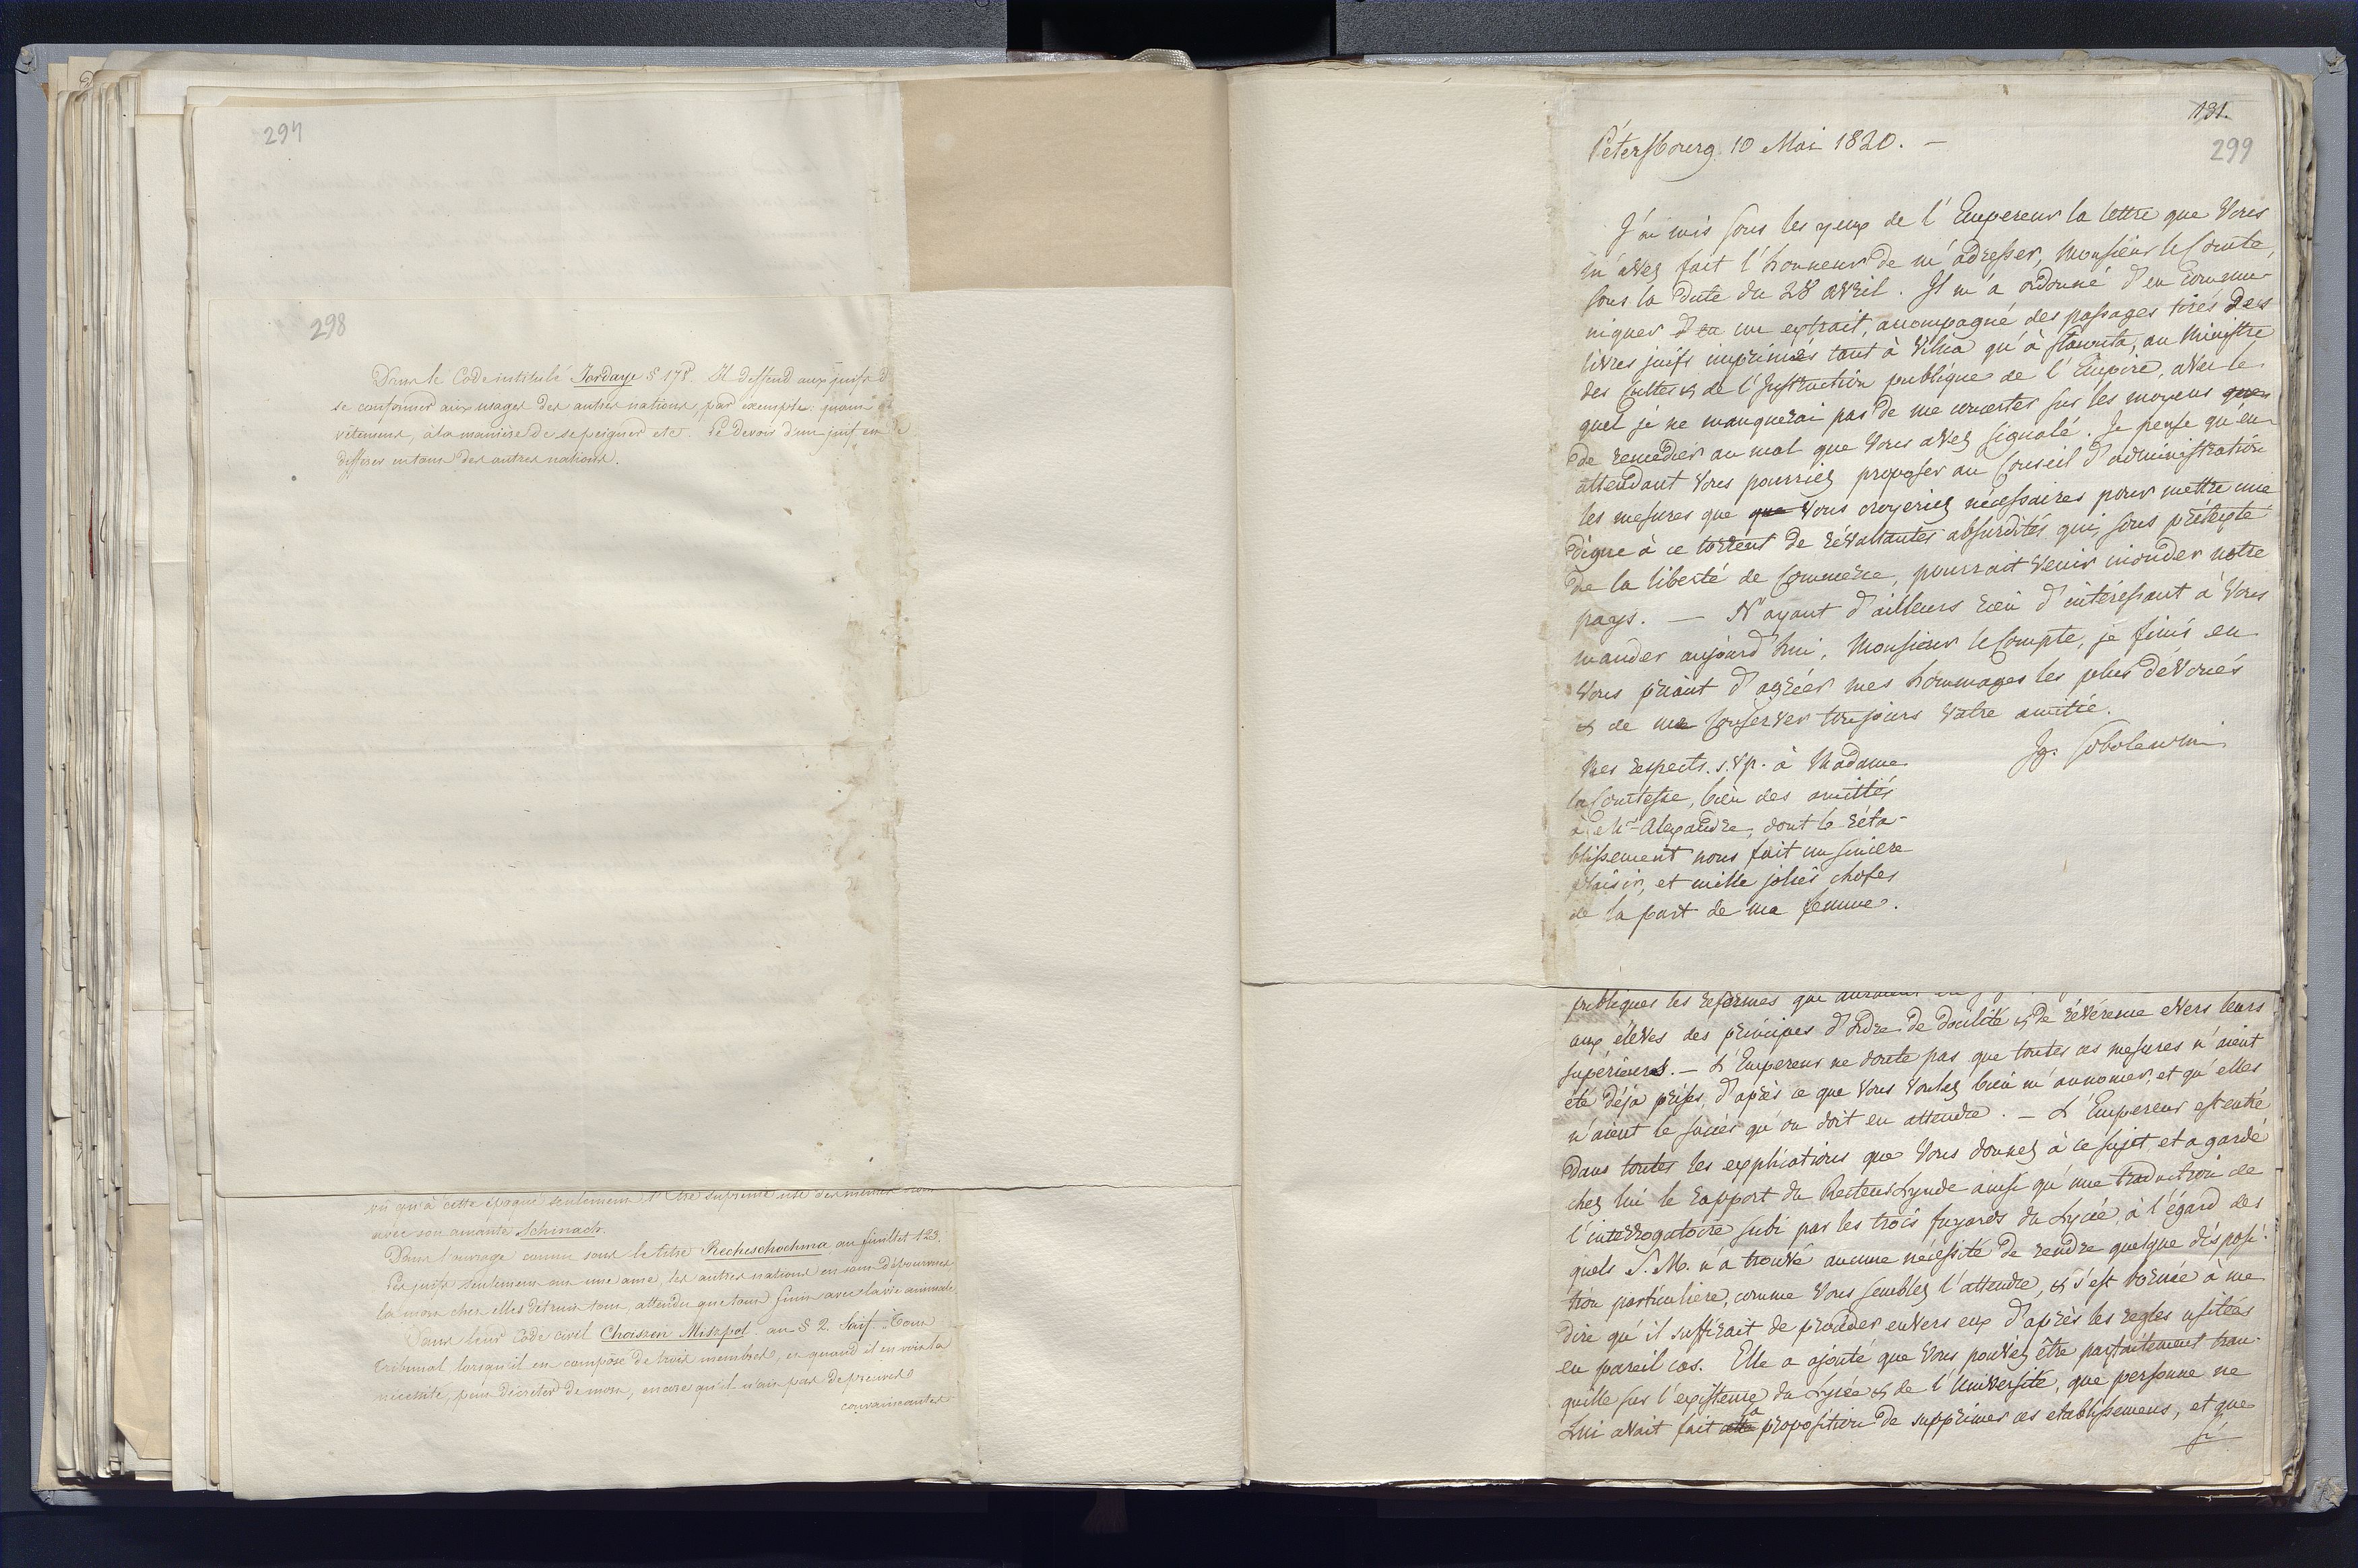 294
298
Dans le Code intitulé Jordaye § 178. Il deffend aux juifs d
se conformer aux usages des autres nations, par exemple: quant
vêtement, à la manière de se peigner etc. Le devoir d'un juif en
differer en tout des autres nations.
qu'à cette époque seulement l'Etre suprême
avec son amante Schinach.
Dans l'ouvrage connu sous le titre Recheschochma au feuillet 123.
Les juifs seulement ont une ame, les autres nations en sont dépourvues
la mort chez elles détruit tout, attendu que tout finit avec la vie animale.
Dans leur Code civil Choiszen Miszpot au § 2. Saif. Tout
tribunal lorsqu'il est composé de trois membres, et quand il en voit la
nécessité, peut décréter de mort, encore qu'il n'ait pas de preuves
convaincantes
131.
299
Pétersbourg 10 Mai 1820. —
J'ai mis sous les yeux de l'Empereur la lettre que Vous
m'avez fait l'honneur de m'adresser, Monsieur le Comte,
sous la date du 28 avril. Il m'a ordonné d'en commu-
niquer un extrait, accompagné des passages tirés des
livres juifs imprimés tant à Vilna qu'à Slawuta, au Ministre
des Cultes & de l'Instruction publique de l'Empire, avec le
quel je ne manquerai pas de me concerter sur les moyens
de remedier au mal que Vous avez signalé. Je pense qu'en
attendant Vous pourriez proposer au Conseil d'administration
les mesures que que Vous croyeriez nécessaires pour mettre une
digue à ce torrent de révoltantes absurdités qui, sous prétexte
de la liberté de Commerce, pourrait venir inonder notre
pays. — N'ayant d'ailleurs rien d'intéressant à Vous
mander aujourd'hui, Monsieur le Compte, je finis en
Vous priant d'agréer mes hommages les plus dévoués
& de me conserver toujours Votre amitié.
Ig. Sobolewski
Mes respects s.v.p. à Madame
la Comtesse, bien des amitiés
à Mr Alexandre, dont le réta-
blissement nous fait un sincère
plaisir, et mille jolies choses
de la part de ma femme.
publiques les reformes que
aux élèves des principes d'ordre de docilité & de révérence envers leurs
supérieurs. — L'Empereur ne doute pas que toutes ces mesures n'aient
été déjà prises, d'après ce que Vous voulez bien m'annoncer, et qu'elles
n'aient le succès qu'on doit en attendre. — L'Empereur est entré
dans toutes les explications que Vous donnez à ce sujet et a gardé
chez lui le rapport du Recteur Lynde ainsi qu'une traduction de
l'interrogatoire subi par les trois fuyards du Lycée, à l'égard des
quels S. M. n'a trouvé aucune nécessité de rendre quelque disposi-
tion particulière, comme Vous semblez l'attendre, & s'est bornée à me
dire qu'il suffirait de procéder envers eux d'après les regles usitées
en pareil cas. Elle a ajouté que Vous pouvez être parfaitement tran-
quille sur l'existence du Lycée & de l'Université, que personne ne
Lui avait fait la proposition de supprimer ces etablissemens, et que
si